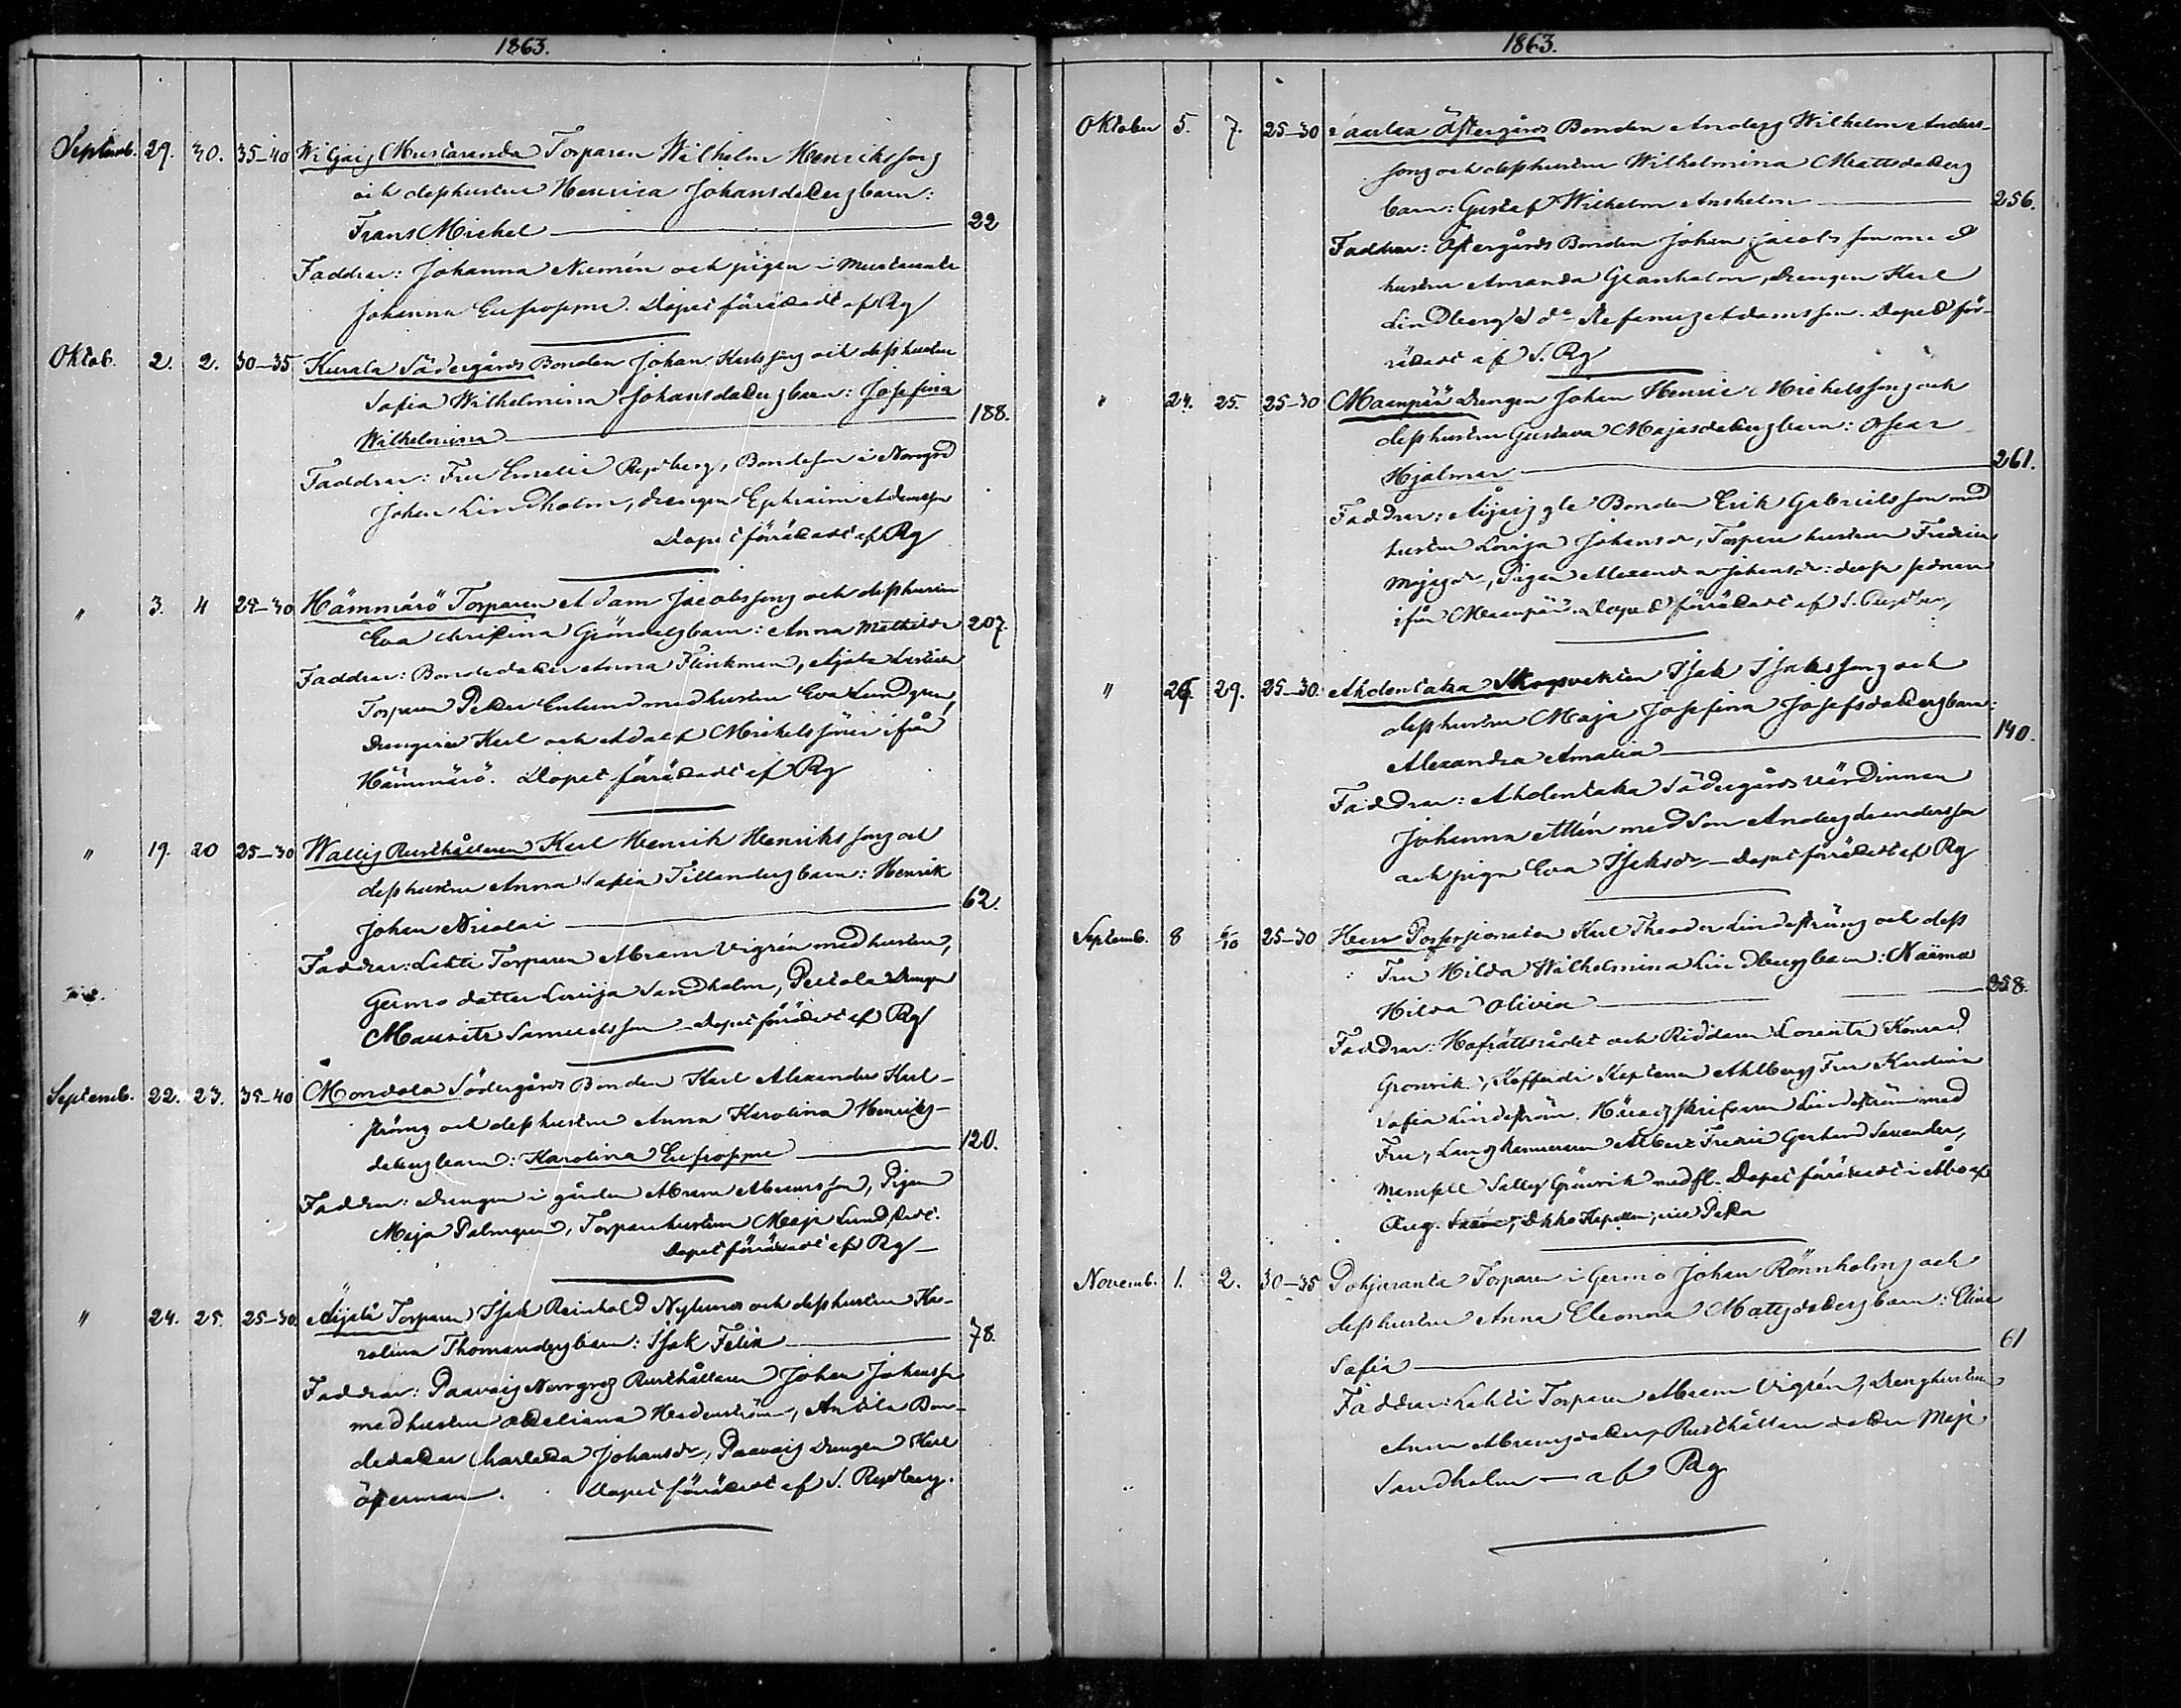 1863.
Septemb. 29. 30. 35-40 Wiljais Mustaranda Torparen Wilhelm Henrikssons
och dess hustrus Henrica Johansdotters barn:
Frans Michel 22
Faddrar: Johanna Niemén och pigan i
Johanna Eufrosyne. Dopet förrättadt af Rg
Oktob. 2. 2. 30-35 Kurala Södergårds Bonden Johan Karlssons och dess hustrus
Sofia Wilhelmina Johansdotters barn: Josefina
Wilhelmina 188.
Faddrar: Fru Emelie Rydberg, Bondeson i Norrgård
Johan Lindholm, drengen Ephraim Adamsson
Dopet förrättadt af Rg
" 3. 4 29-30 Hämmärö Torparen Adam Jacobssons och dess hustrus
Eva Christina Gröndals barn: Anna Mathilda 207.
Faddrar: Bondedotter Anna Flinkman, Ajala
Torparen Petter Enlund med hustru Eva Lundgren,
Drengarne Karl och Adolf Michelssöner ifrån
Hämmärö. Dopet förrättadt af Rg
" 19. 20 25-30 Wallis Rusthållaren Karl Henrik Henrikssons och
dess hustrus Anna Sofia Tillanders barn: Henrik
Johan Nicolai 62.
Faddrar: Lahti Torparen Abram Vigrén med hustru,
Germo dotter Lovisa Sandholm, drengen
Maurits Samuelsson Dopet förrättadt af Rg
Septemb. 22. 23. 35-40 Mondola Södergårds Bonden Karl Alexander Karl-
ströms och dess hustrus Anna Karolina Henriks-
dotters barn: Karolina Eufrosyne 120.
Faddrar: Drengen i gården Abram Abramsson, Pigan
Maja Palmgren, Torparehustrun Maja Lundstedt.
Dopet förrättadt af Rg
" 24. 25. 25-30. Äijälä Torparen Isak Reinhold Nylunds och dess hustrus Ka-
rolina Thomanders barn: Isak Felix 78.
Faddrar: Paavois Norrgårds Rusthållaren Johan Johansson
med hustru Adeliana Hedenström, Anttila Bon-
dedotter Charlotta Johansdr, Paavois drengen Karl
Österman. Dopet förrättadt af S. Rydberg.
1863.
Oktober 5. 7. 25-30 Östergårds Bonden Anders Wilhelm Anders-
sons och dess hustrus Wilhelmina Mattsdotters
barn: Gustaf Wilhelm Anshelm 256.
Faddrar: Östergårds Bonden Johan Jacobsson med
hustru Amanda Granholm, Drengen Karl
Lindberg do Stefanus Adamsson. Dopet för-
rättadt af S. Rg
" 24. 25. 25-30 Maanpää Drengen Johan Henric Michelssons och
dess hustrus Gustava Majasdotters barn: Oscar
Hjalmar 261.
Faddrar: Bonden Erik Gabrielsson med
hustru Lovisa Johansdr, Torpare hustrun Fredrica
Majasdr, Pigan Alexandra Johansdr: dessa sednare
ifrån Maanpää. Dopet förrättadt af S. Rydberg
" 26. 29. 25-30. Ahdentaka Skogsvaktaren Isak Isakssons och
dess hustrus Maja Josefina Josefsdotters barn:
Alexandra Amalia 140.
Faddrar: Ahdentaka Södergårds värdinnan
Johanna Allén med son Anders Andersson
och pigan Eva Isaksdr Dopet förrättadt af Rg
Septemb. 8 6/10 25-30 Herr Possessionaten Karl Theodor Lindeströms och dess
Fru Hilda Wilhelmina Lindbergs barn: Naëma
Hilda Olivia 258.
Faddrar: Hofrättsrådet och Riddaren Lorents Konrad
Grönvik, Koffardi Kaptenen Ahlberg, Fru Karolina
Sofia Lindeström. Häradsskrifvaren Lindeström med
Fru, Albert Fredric Gerhard Savander,
Mamsell Sally Grönvik med fl. Dopet förrättadt i Åbo af
Aug.
Novemb. 1. 2. 30-35 Pohjaranta Torparen i Germo Johan Rönnholms och
dess hustrus Anna Eleonora Matsdotters barn: Elina
Sofia 61
Faddrar: Lahti Torparen Abram Vigrén, Drenghustrun
Anna Abramsdotter, Rusthållare dotter Maja
Sandholm af Rg